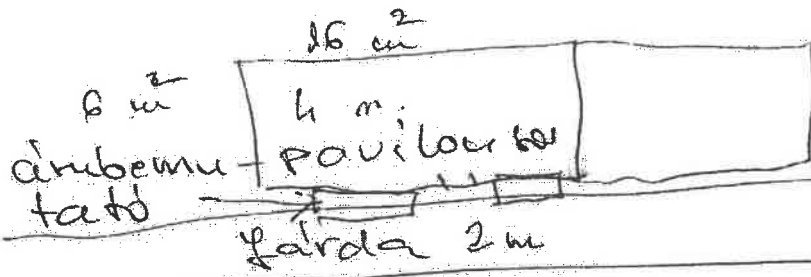 16 m²
6 m²
4 m.
árubemu-
tató
pavilon sor
járda 2 m